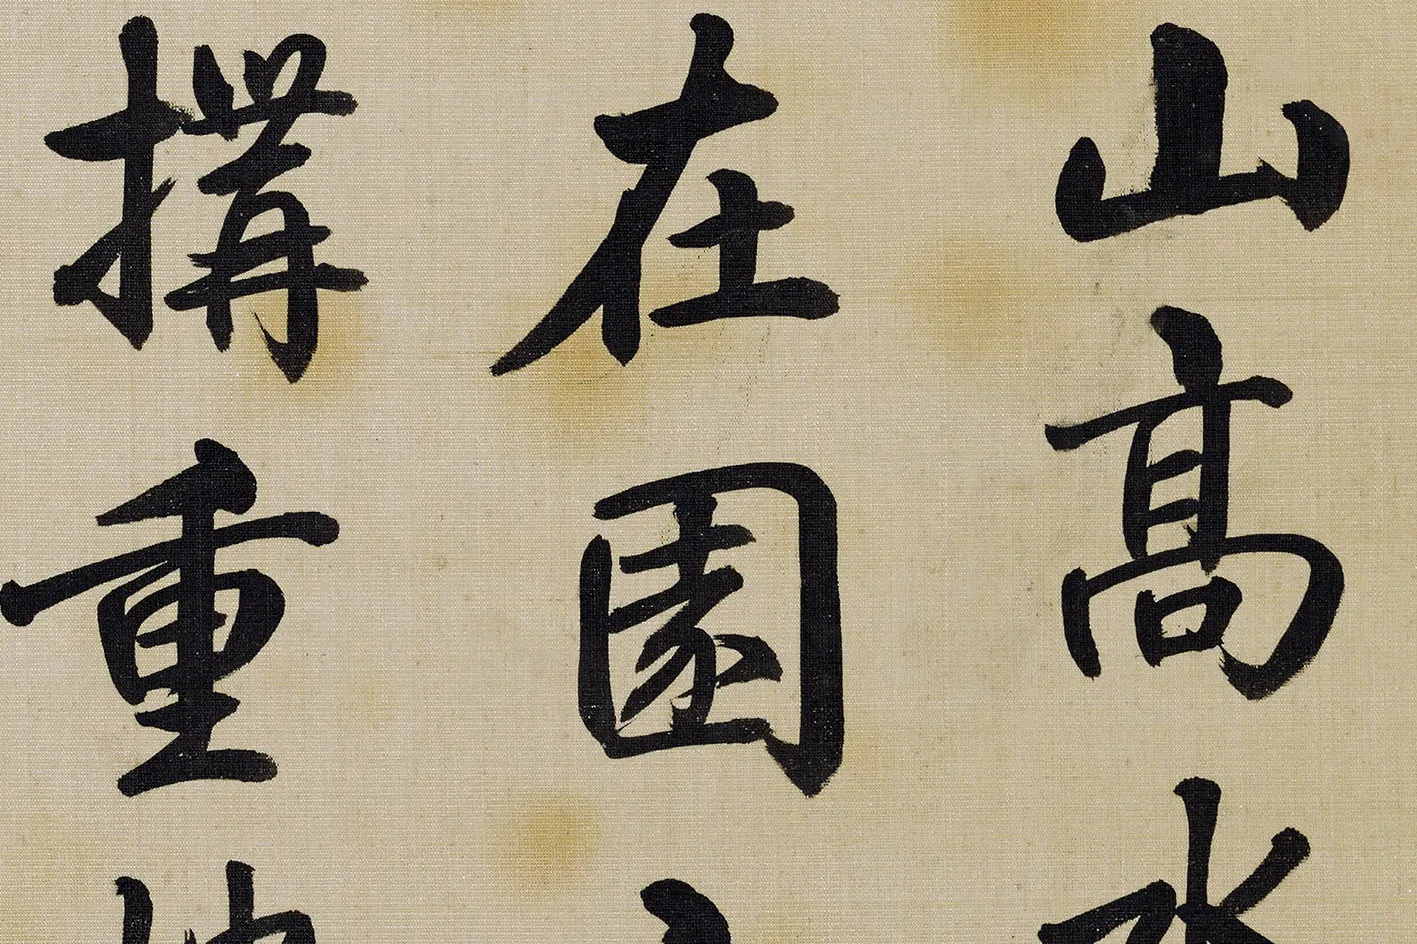 山高水
在園
搆重